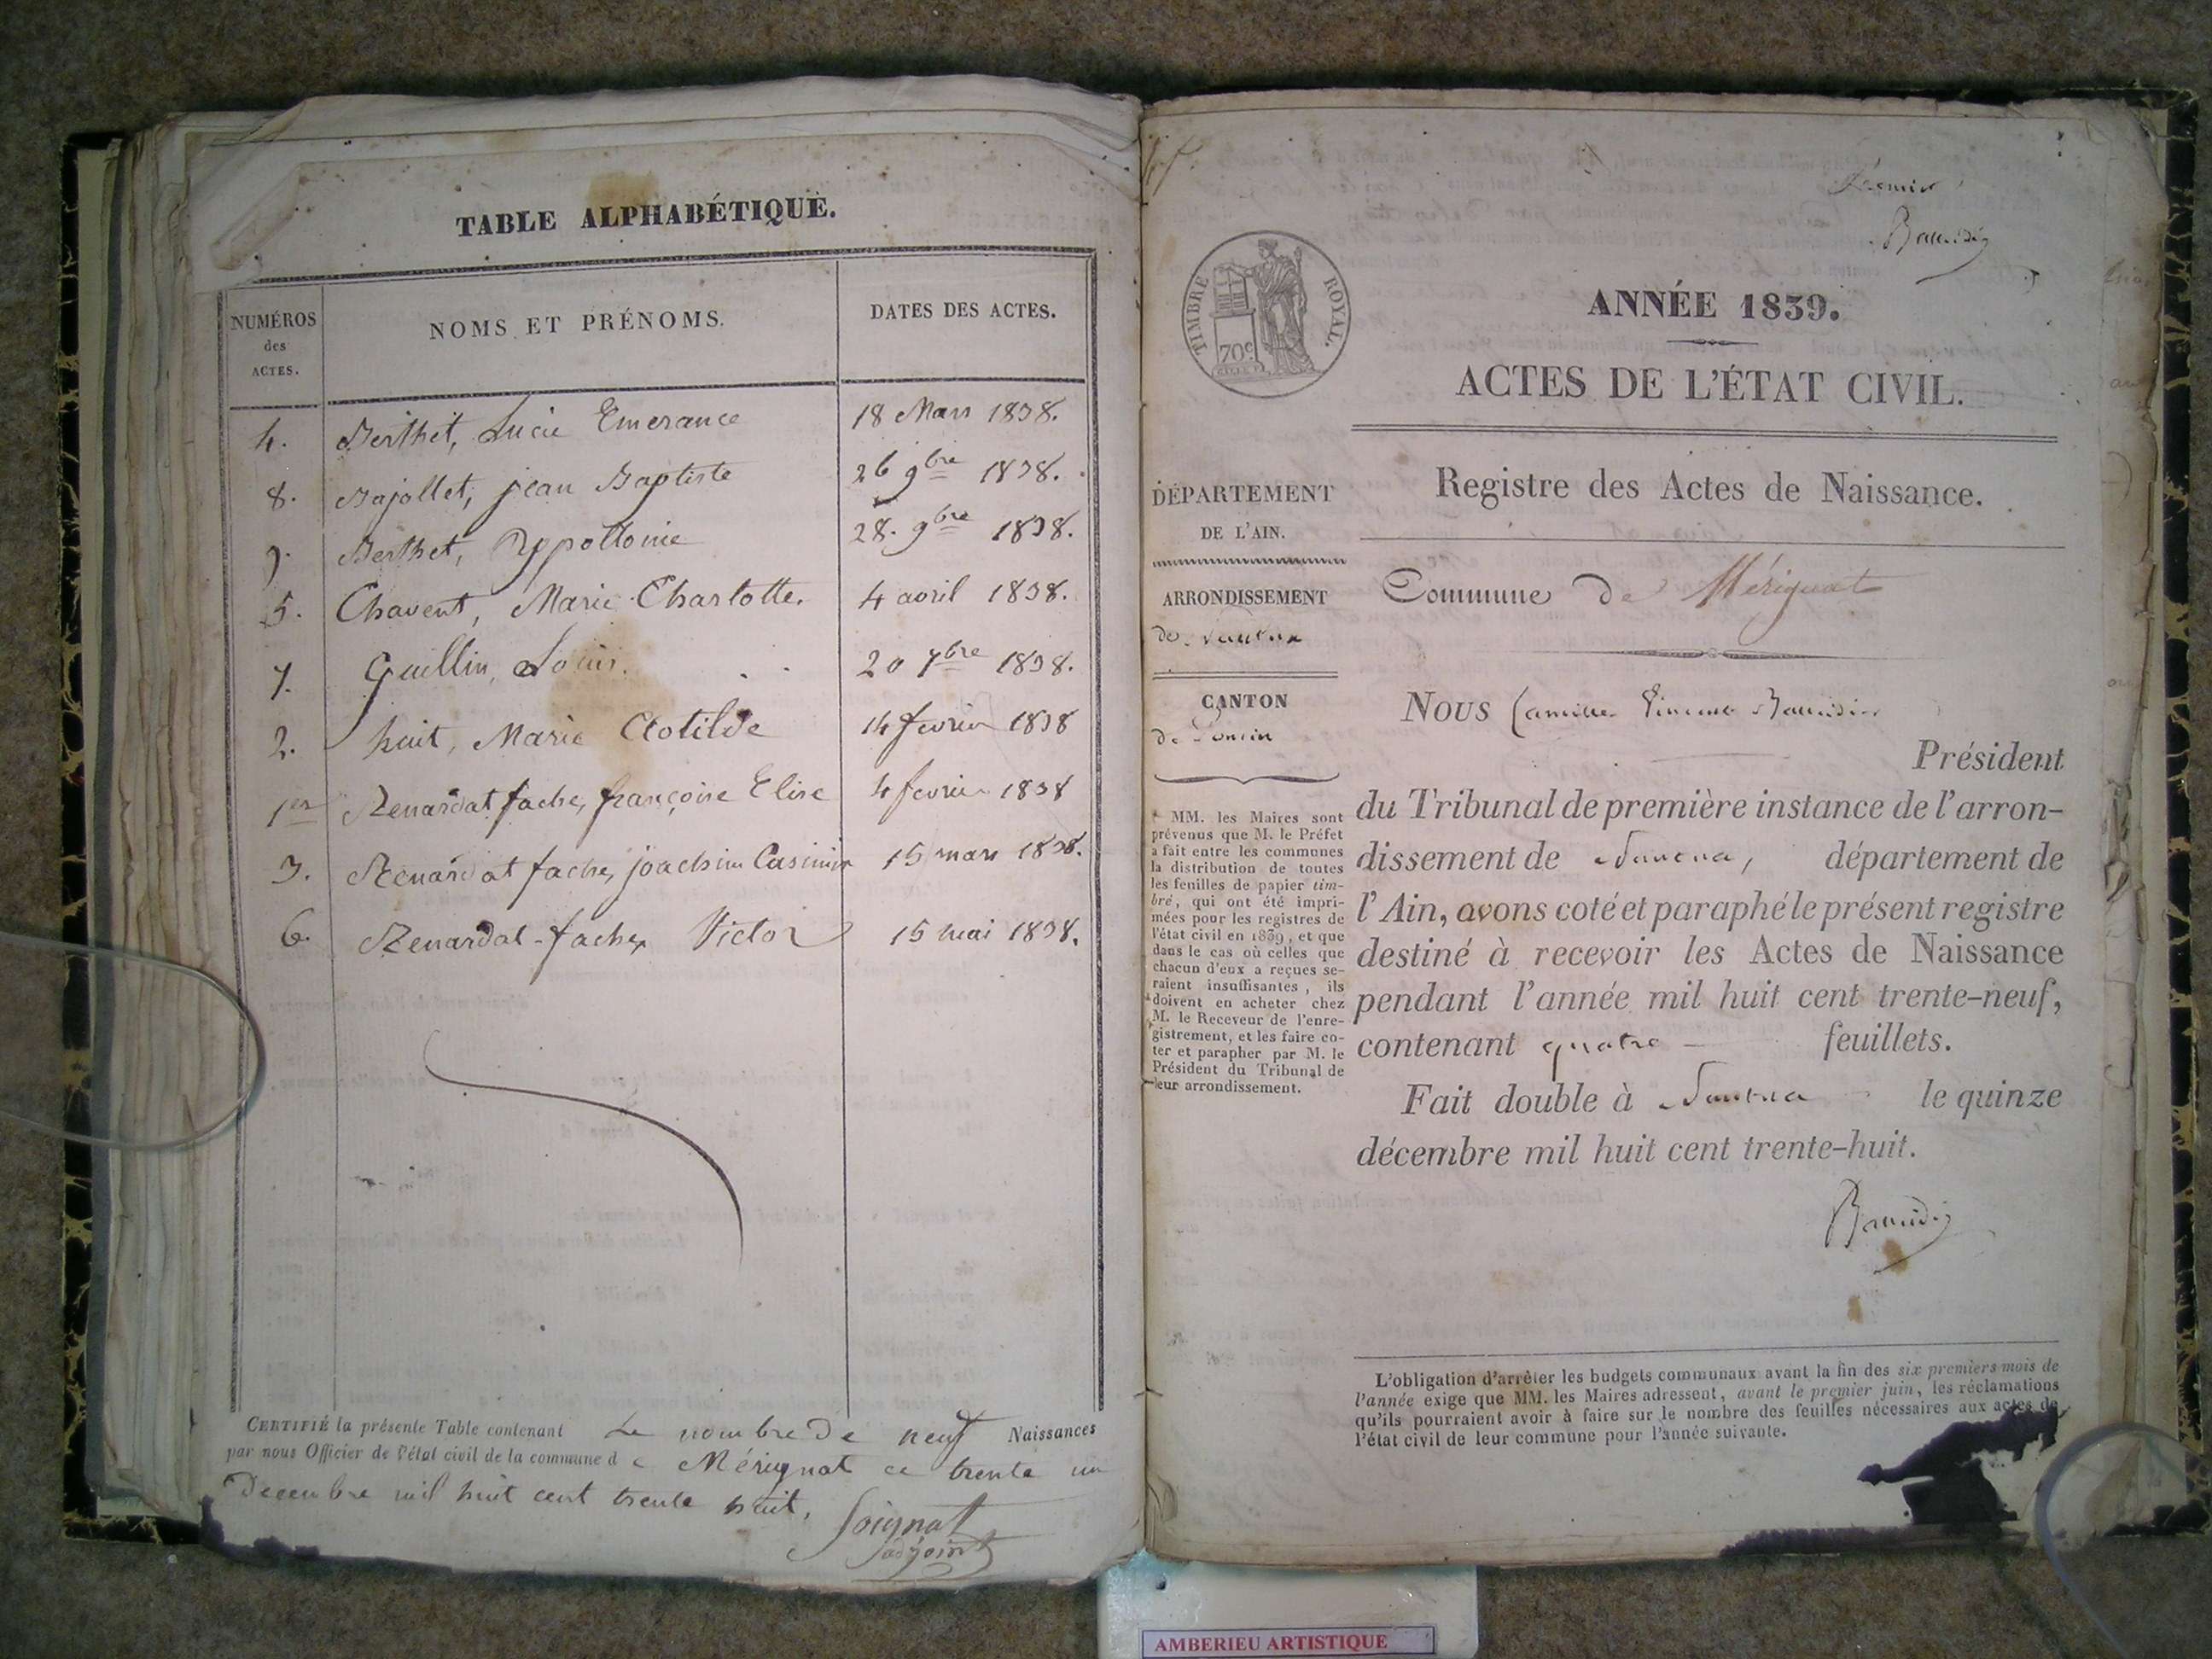 TABLE ALPHABÉTIQUE.
NUMÉROS
des
ACTES.
NOMS ET PRÉNOMS.
DATES DES ACTES.
4. Berthet, Lucie Emerance 18 Mars 1838.
8. Bajollet, jean Baptiste 26 9bre 1838.
9. Berthet, Appollonie 28. 9bre 1838.
5. Chavent, Marie Charlotte. 4 avril 1838.
7. Guillin, Louis. 20 7bre 1838.
2. huit, Marie Clotilde 14 fevrier 1838
1er Renardat fache, françoise Elise 4 fevrier 1838
3. Renardat fache, joachim Casimir 15 mars 1838.
6. Renardat-fache, Victor 15 mai 1838.
CERTIFIÉ la présente Table contenant Le nombre de neuf Naissances
par nous Officier de l'état civil de la commune de Mérignat ce trente un
Decembre mil huit cent trente huit,
Soignat
adjoint
TIMBRE ROYAL.
70c
Premier
Baudin
ANNÉE 1839.
ACTES DE L'ÉTAT CIVIL.
Registre des Actes de Naissance.
DÉPARTEMENT
DE L'AIN.
ARRONDISSEMENT
de Nantua
CANTON
de Poncin
* MM. les Maires sont
prévenus que M. le Préfet
a fait entre les communes
la distribution de toutes
les feuilles de papier tim-
bré, qui ont été impri-
mées pour les registres de
l'état civil en 1839, et que
dans le cas où celles que
chacun d'eux a reçues se-
raient insuffisantes, ils
doivent en acheter chez
M. le Receveur de l'enre-
gistrement, et les faire co-
ter et parapher par M. le
Président du Tribunal de
leur arrondissement.
Commune de Mérignat
Nous Camille Vincent
Président
du Tribunal de première instance de l'arron-
dissement de Nantua, département de
l'Ain, avons coté et paraphé le présent registre
destiné à recevoir les Actes de Naissance
pendant l'année mil huit cent trente-neuf,
contenant quatre feuillets.
Fait double à Nantua le quinze
décembre mil huit cent trente-huit.
L'obligation d'arrêter les budgets communaux avant la fin des six premiers mois de
l'année exige que MM. les Maires adressent, avant le premier juin, les réclamations
qu'ils pourraient avoir à faire sur le nombre des feuilles nécessaires aux actes de
l'état civil de leur commune pour l'année suivante.
AMBERIEU ARTISTIQUE